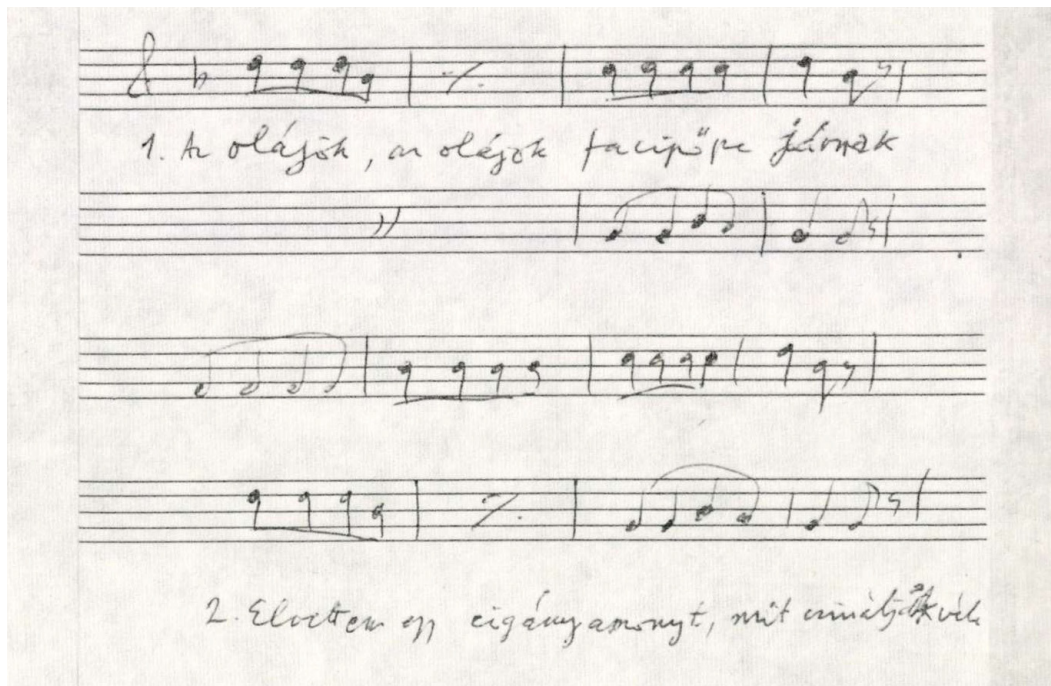 1. Az olájok, az olájok facipőbe járnak
2. Elvettem egy cigányasszonyt, mit csináljak véle